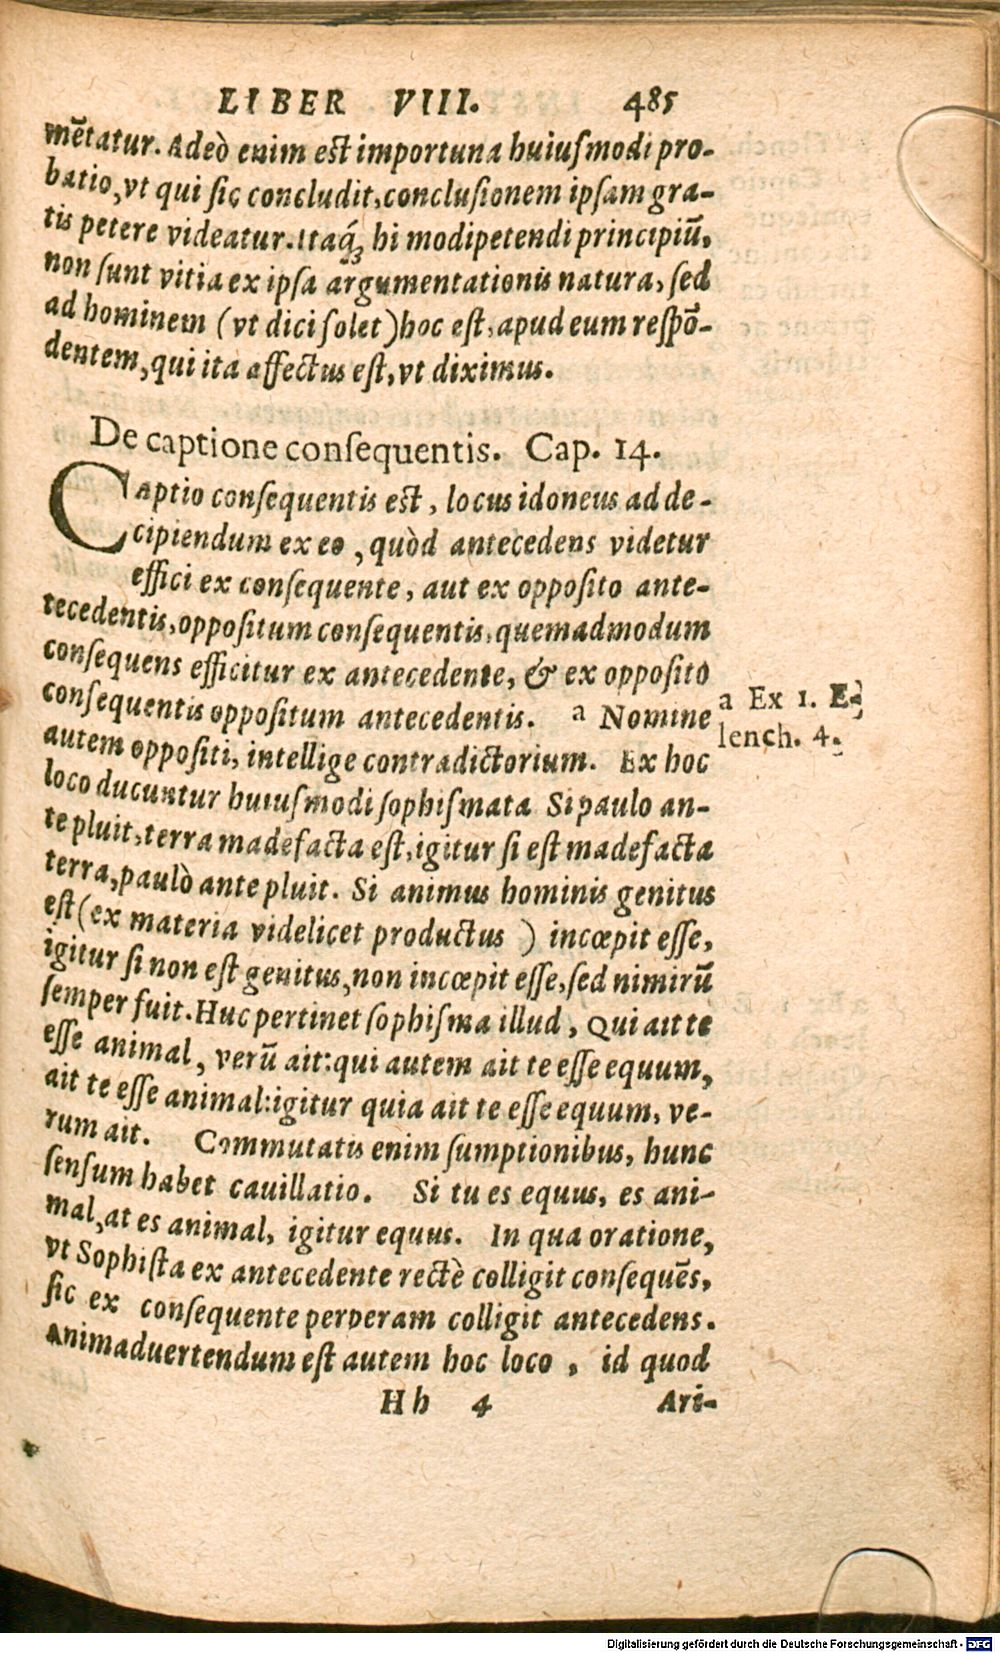 LIBER VIII. 485
mētatur. Adeò enim est importuna huiuſmodi pro-
batio, vt qui ſic concludit, concluſionem ipſam gra-
tis petere videatur. Itaq́; hi modi petendi principiū,
non ſunt vitia ex ipſa argumentationis natura, ſed
ad hominem (vt dici ſolet) hoc eſt, apud eum reſpō-
dentem, qui ita affectus eſt, vt diximus.
De captione conſequentis. Cap. 14.
Captio conſequentis eſt, locus idoneus ad de-
cipiendum ex eo, quòd antecedens videtur
effici ex conſequente, aut ex oppoſito ante-
tecedentis, oppoſitum conſequentis, quemadmodum
conſequens efficitur ex antecedente, & ex oppoſito
conſequentis oppoſitum antecedentis. a Nomine
autem oppoſiti, intellige contradictorium. Ex hoc
loco ducuntur huiuſmodi ſophiſmata Si paulo an-
te pluit, terra madefacta eſt, igitur ſi eſt madefacta
terra, paulò ante pluit. Si animus hominis genitus
eſt (ex materia videlicet productus) incœpit eſſe,
igitur ſi non eſt genitus, non incœpit eſſe, ſed nimirū
ſemper fuit. Huc pertinet ſophiſma illud, Qui ait te
eſſe animal, verū ait: qui autem ait te eſſe equum,
ait te eſſe animal: igitur quia ait te eſſe equum, ve-
rum ait. Commutatis enim ſumptionibus, hunc
ſenſum habet cauillatio. Si tu es equus, es ani-
mal, at es animal, igitur equus. In qua oratione,
vt Sophiſta ex antecedente rectè colligit conſequēs,
ſic ex conſequente perperam colligit antecedens.
Animaduertendum eſt autem hoc loco, id quod
Hh 4 Ari-
a Ex 1. E-
lench. 4.
Digitalisierung gefördert durch die Deutsche Forschungsgemeinschaft - DFG